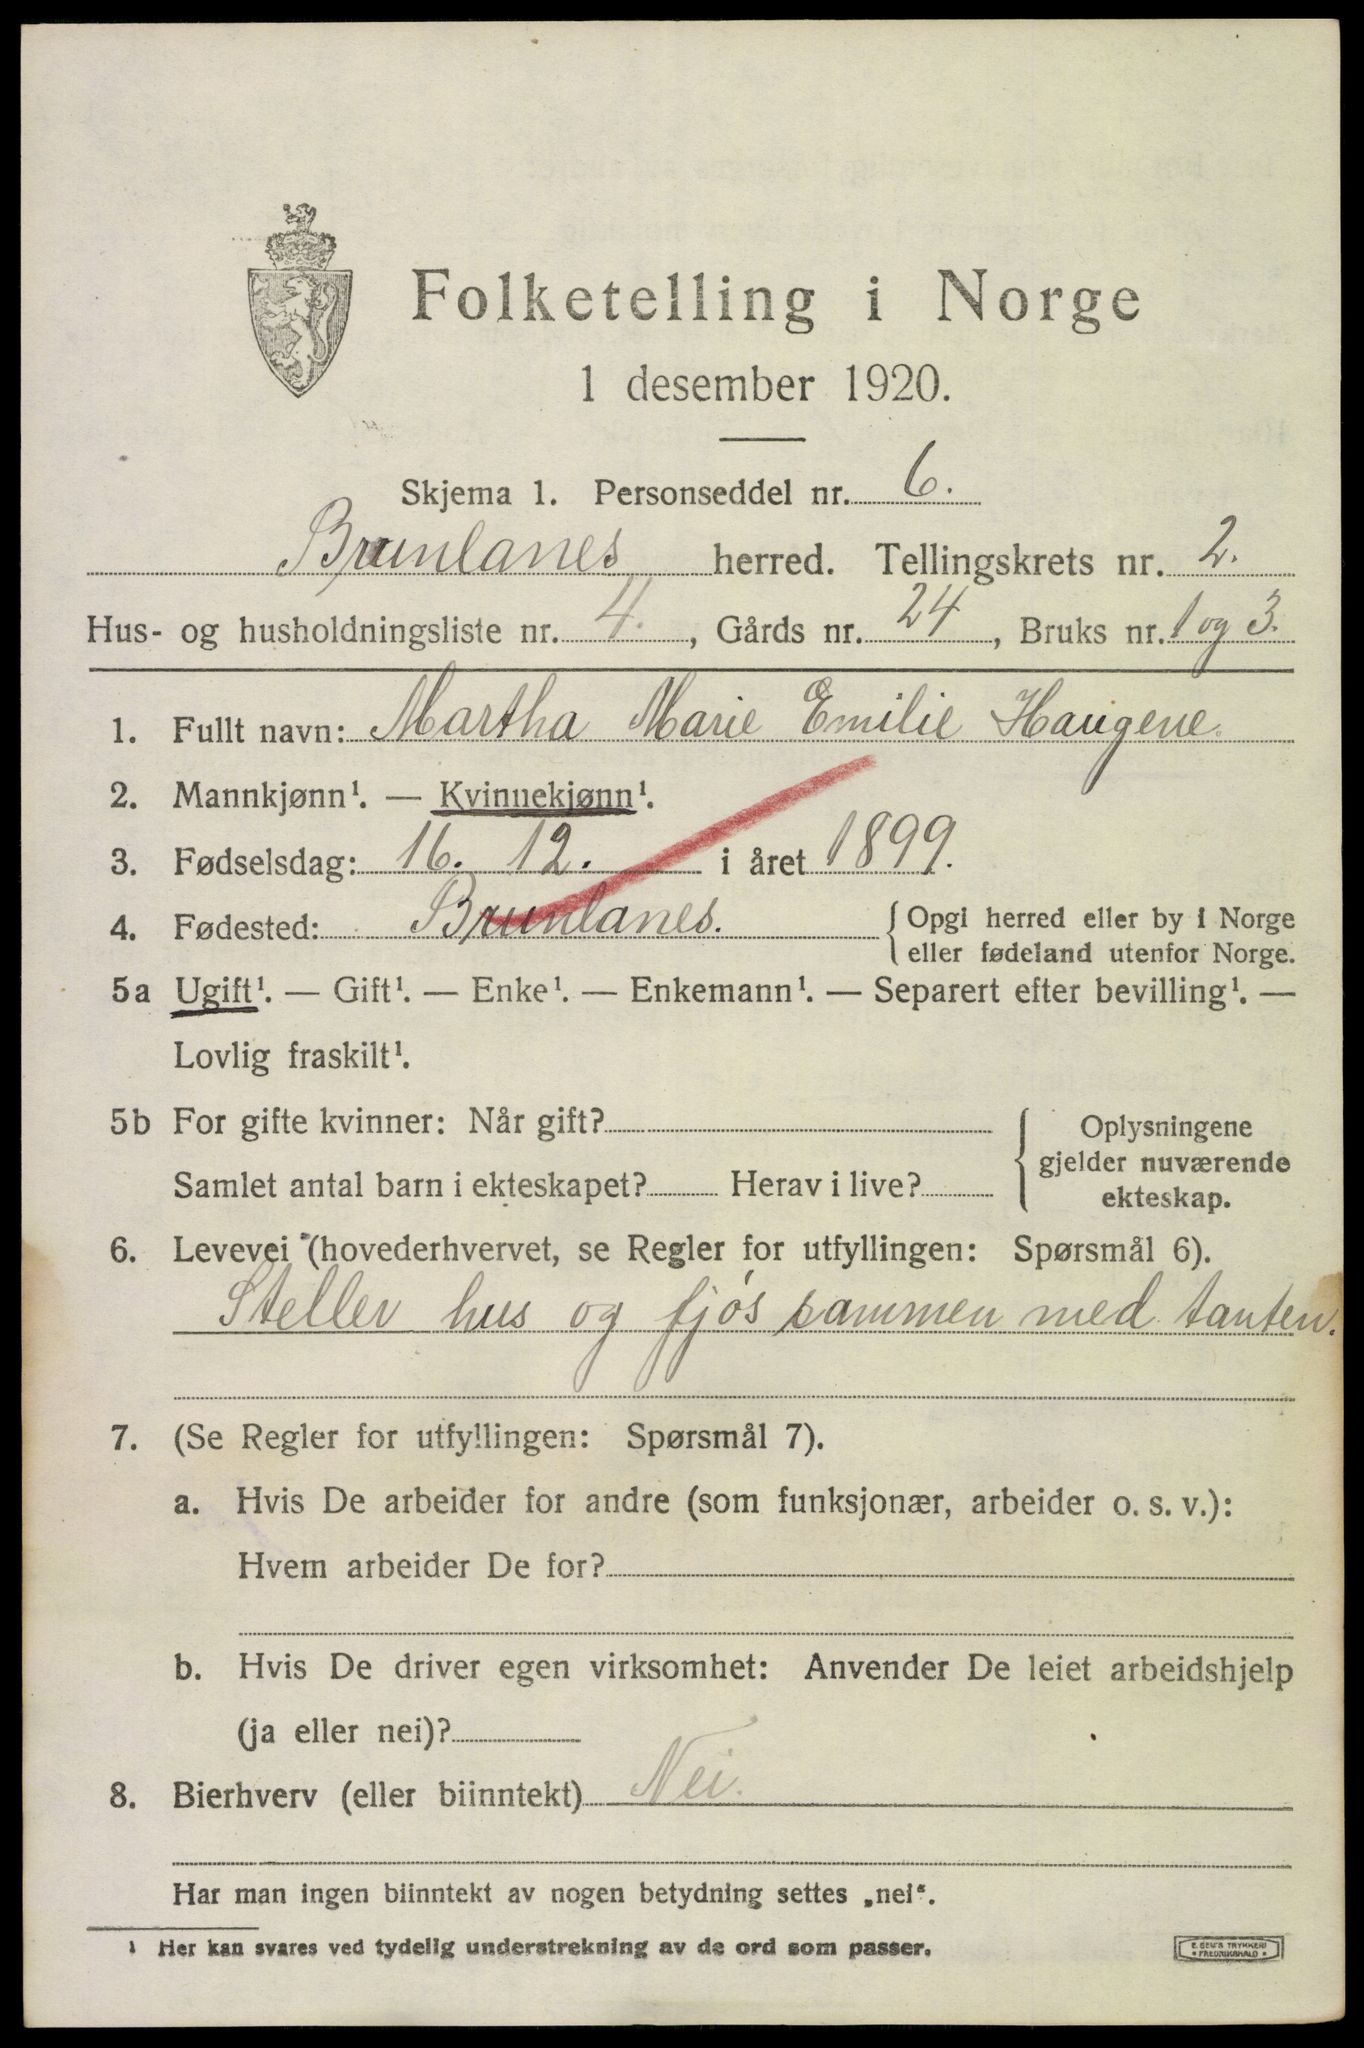 Folketelling i Norge
1 desember 1920.
Skjema 1. Personseddel nr. 6.
Brunlanes herred. Tellingskrets nr. 2.
Hus- og husholdningsliste nr. 4., Gårds nr. 24, Bruks nr. 1 og 3.
1. Fullt navn: Martha Marie Emilie Haugene.
2. Mannkjønn¹. — Kvinnekjønn¹.
3. Fødselsdag: 16. 12. i året 1899.
4. Fødested: Brunlanes. { Opgi herred eller by i Norge
eller fødeland utenfor Norge.
5a Ugift¹. — Gift¹. — Enke¹. — Enkemann¹. — Separert efter bevilling¹. —
Lovlig fraskilt¹.
5b For gifte kvinner: Når gift?
Samlet antal barn i ekteskapet? Herav i live?
Oplysningene
gjelder nuværende
ekteskap.
6. Levevei (hovederhvervet, se Regler for utfyllingen: Spørsmål 6).
Steller hus og fjøs sammen med tanten.
7. (Se Regler for utfyllingen: Spørsmål 7).
a. Hvis De arbeider for andre (som funksjonær, arbeider o. s. v.):
Hvem arbeider De for?
b. Hvis De driver egen virksomhet: Anvender De leiet arbeidshjelp
(ja eller nei)?
8. Bierhverv (eller biinntekt) Nei.
Har man ingen biinntekt av nogen betydning settes „nei“.
¹ Her kan svares ved tydelig understrekning av de ord som passer.
E. SEM'S TRYKKERI
• FREDRIKSHALD •